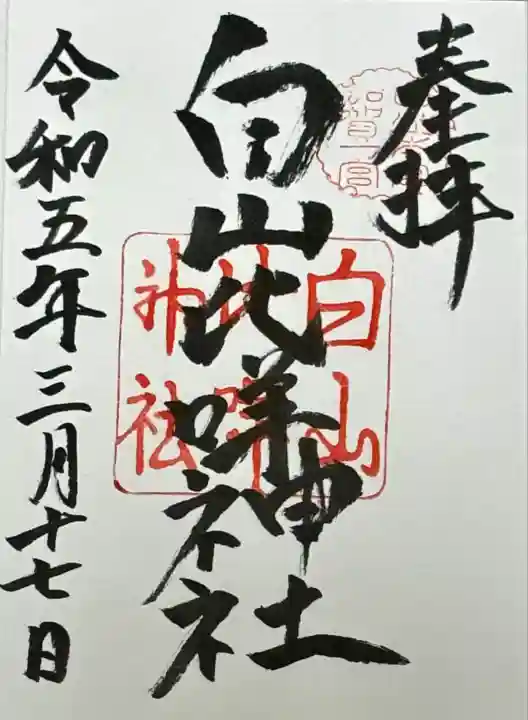 奉拝
白山比咩神社
白山
比咩
神社
令和五年三月十七日